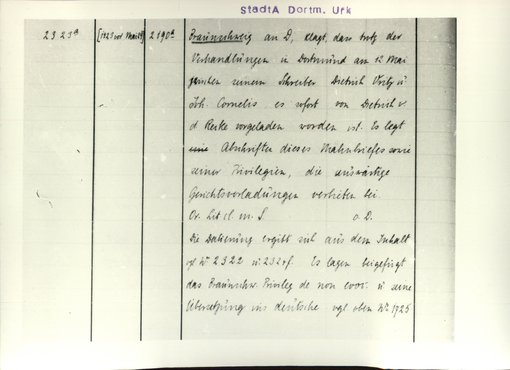 StadtA Dortm. Urk
2323a [1423 vor Mai 21] 2190a Braunschweig an D, klagt, dass trotz der
Verhandlungen in Dortmund am 12 Mai
zwischen seinem Schreiber Dietrich Fritz u
Joh. Cornelis es sofort von Dietrich v
d Recke vorgeladen worden ist. Es legt
Abschriften dieses Mahnbriefes sowie
seiner Privilegien, die auswärtige
Gerichtsvorladungen verbieten bei.
Or. Lit cl. m. S o. D.
Die Datierung ergibt sich aus dem Inhalt
vgl Nr 2322 u 2324f. Es lagen beigefügt
das Braunschw. Privileg de non evoc. u seine
Übersetzung ins deutsche vgl oben Nr 1725